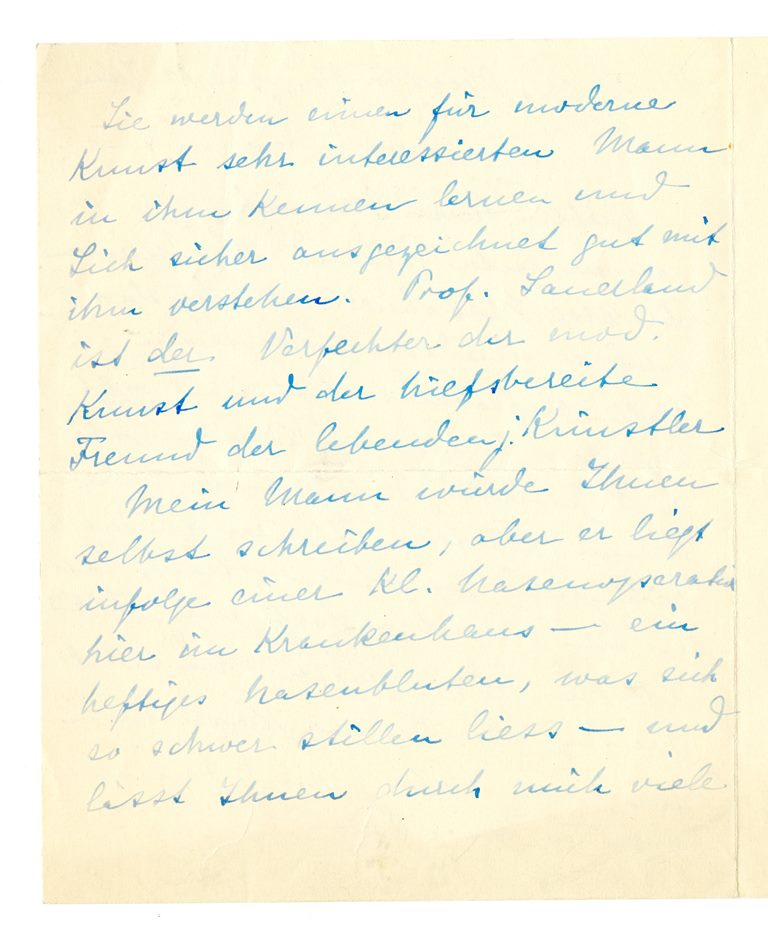 Sie werden einen für moderne
Kunst sehr interessierten Mann
in ihm kennen lernen und
Sich sicher ausgezeichnet gut mit
ihm verstehen. Prof. Sauerland
ist der Verfechter der mod.
Kunst und der hilfsbereite
Freund der lebenden j. Künstler
Mein Mann würde Ihnen
selbst schreiben, aber er liegt
infolge einer kl. Nasenoperation
hier im Krankenhaus — ein
heftiges Nasenbluten, was sich
so schwer stillen liess — und
lässt Ihnen durch mich viele